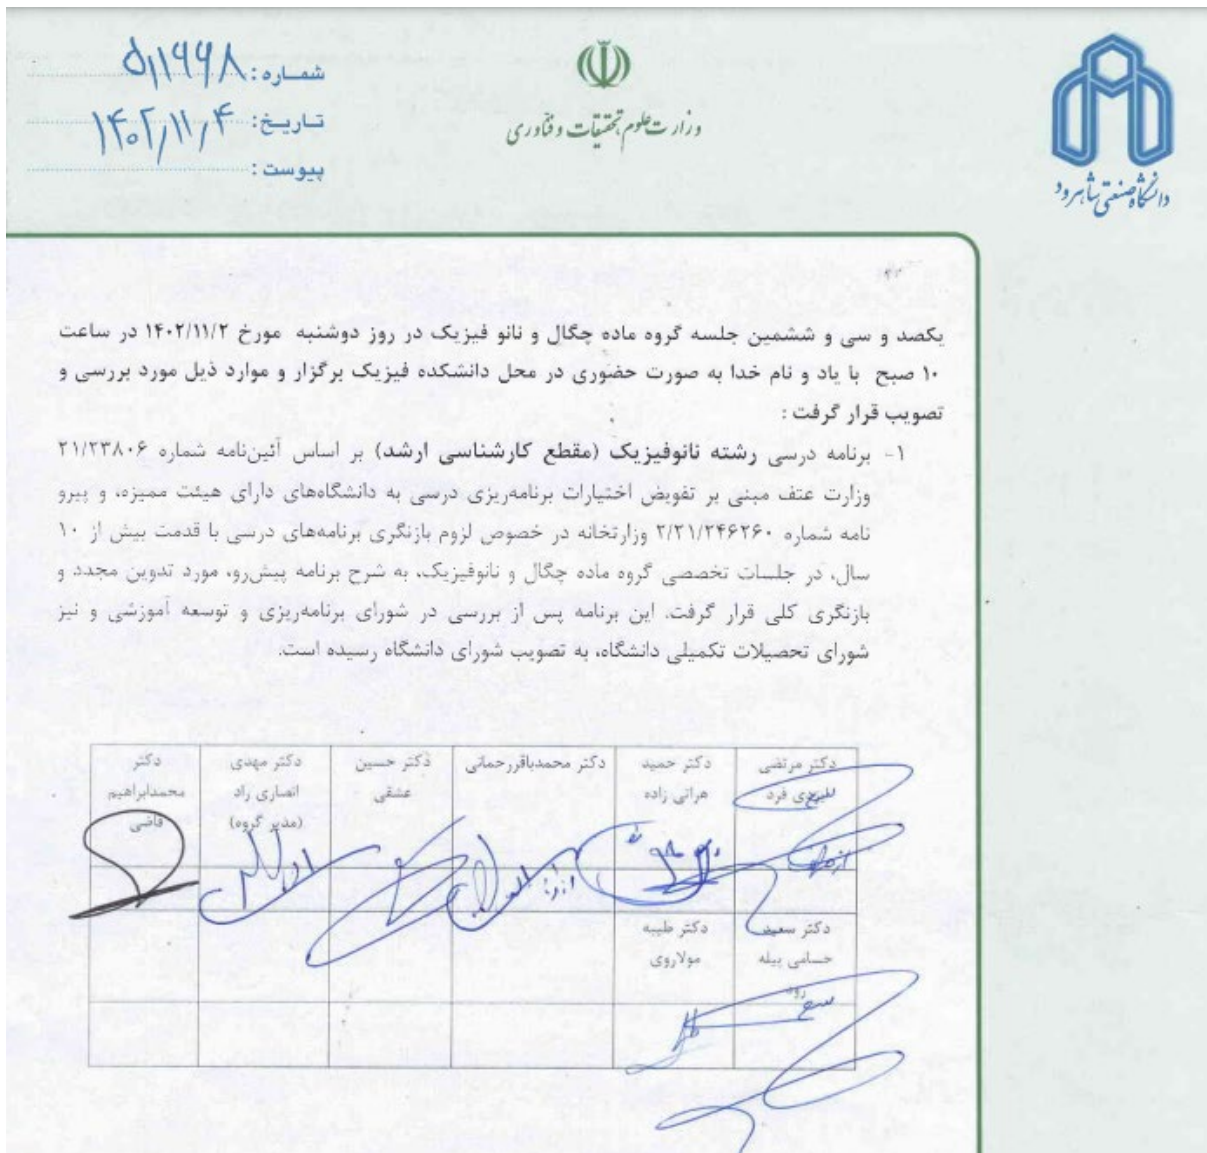 شماره: ۵۱۱۹۹۸
تاریخ: ۱۴۰۲/۱۱/۴
پیوست:
وزارت علوم تحقیقات و فنّاوری
دانشگاه صنعتی شاهرود
یکصد و سی و ششمین جلسه گروه ماده چگال و نانو فیزیک در روز دوشنبه مورخ ۱۴۰۲/۱۱/۲ در ساعت
۱۰ صبح با یاد و نام خدا به صورت حضوری در محل دانشکده فیزیک برگزار و موارد ذیل مورد بررسی و
تصویب قرار گرفت :
۱- برنامه درسی رشته نانوفیزیک (مقطع کارشناسی ارشد) بر اساس آئین‌نامه شماره ۲۱/۲۳۸۰۶
وزارت عتف مبنی بر تفویض اختیارات برنامه‌ریزی درسی به دانشگاه‌های دارای هیئت ممیزه، و پیرو
نامه شماره ۲/۲۱/۲۴۶۲۶۰ وزارتخانه در خصوص لزوم بازنگری برنامه‌های درسی با قدمت بیش از ۱۰
سال، در جلسات تخصصی گروه ماده چگال و نانوفیزیک، به شرح برنامه پیش‌رو، مورد تدوین مجدد و
بازنگری کلی قرار گرفت. این برنامه پس از بررسی در شورای برنامه‌ریزی و توسعه آموزشی و نیز
شورای تحصیلات تکمیلی دانشگاه، به تصویب شورای دانشگاه رسیده است.
دکتر مرتضی
فرد
دکتر حمید
هراتی زاده
دکتر محمدباقررحمانی
دکتر حسین
عشقی
دکتر مهدی
انصاری راد
(مدیر گروه)
دکتر
محمدابراهیم
قاضی
دکتر سعید
حسامی پیله
رود
دکتر طیبه
مولاروی